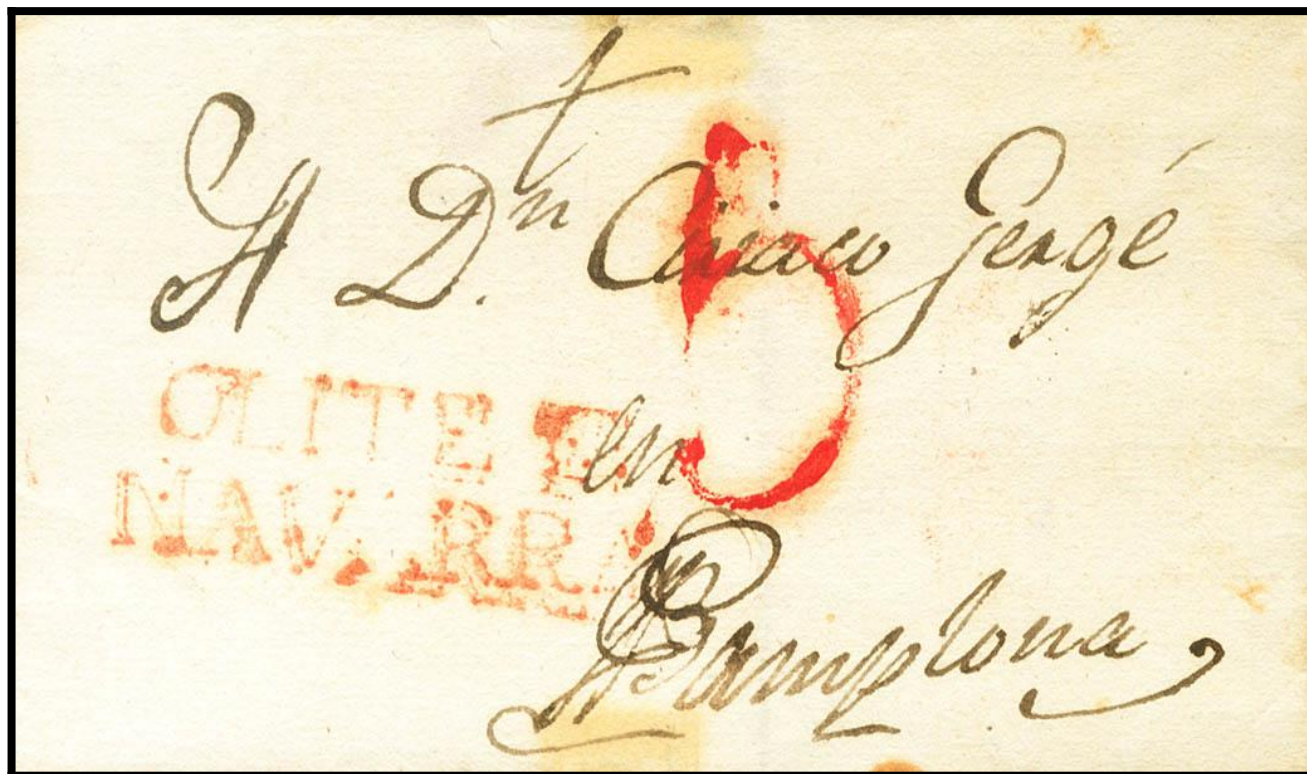 A Dn. Ciriaco Gergé
5
OLITE E
NAVARRA
en
Pamplona,